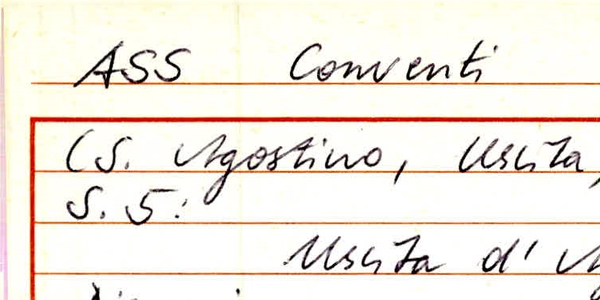 ASS Conventi
(S. Agostino, Uscita,
S. 5:
Uscita d'